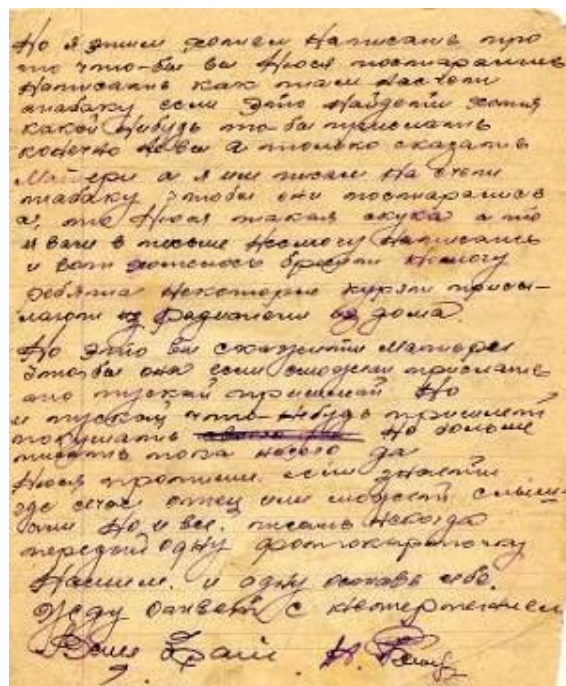 Но я этим хотем написать про
то что-бы вы Нюся постарались
написать как там насчоти
табаку если это найдоти хотя
какой нибудь то бы прислать
конечно не вы а только сказать
Матери а я им писал на счоти
табаку чтобы они постарались
а, то Нюся такая скука а то
и вам в письме немогу написать
и вот хотелось немогу
ребята некоторые курят присы-
лают из дома.
Но это вы скажити матери
что-бы она если сможети прислать
то пускай пришлет Но
и пускай что-нибудь пришлет
покушать Но больше
писать пока нечего да
Нюся пропиши если знаети
где сечас отец или можети слыш-
али Но и все. писать некогда
передай одну фоттокарточку
Нашим. и одну оставь себе.
Жду оствет с нетерпением
Ваш Н.